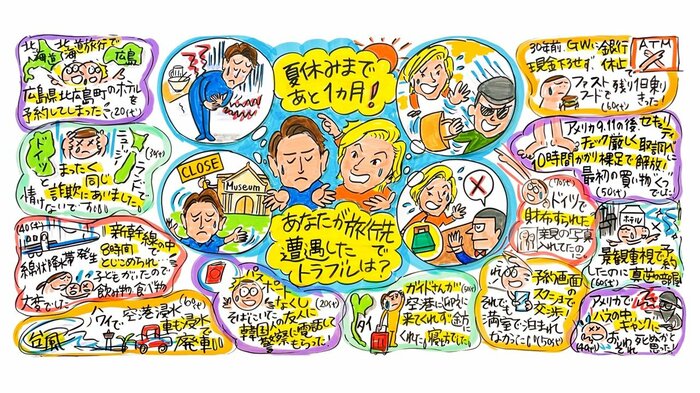 夏休みまで
あと1ヵ月!
あなたが旅行先で
遭遇した
トラブルは?
CLOSE
Museum
北海道
北海道旅行で
広島
広島県北広島町のホテルを
予約してしまった
(20代)
ドイツ
ニュージーランド
まったく同じ
詐欺にあいました。
情けないです
(40代)
新幹線の中
8時間
とじこめられ
線状降水帯発生
子どもがいたので
飲み物食べ物
大変でした
台風
ハワイで
空港浸水
車も浸水で
廃車
(60代)
パスポートをなくし
そばにいた友人に
韓国人の
警察に電話して
もらった!
(20代)
ガイドさんが
空港に
来てくれず
くれた!
寝坊でした。
タイ
予約画面の
スクショで
交渉!
それでも
満室で泊まれ
なかった
(50代)
アメリカで
バスの中
ギャングに
おいおそれ
死ぬかと
思った!
(40代)
30年前、GWに銀行
休止
ATM
現金下ろせず
ファスト
フードで
残り1日乗り
きった!
(60代)
アメリカ9.11の後、セキュリティ
チェック厳しく取調べ
10時間かかり裸足で解放!
最初の買い物くつ
でした
(50代)
ドイツで
(70代)
財布すられた
来見の写真
入れてたのに。
ホテル
景観重視で予約
したのに
真逆の部屋
(60代)